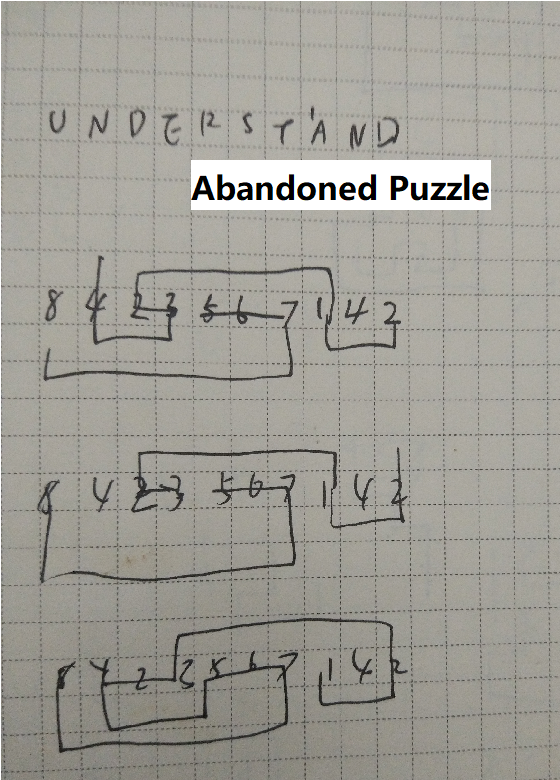 U N D E R S T A N D
Abandoned Puzzle
8 4 2 3 5 6 7 1 4 2
8 4 2 3 5 6 7 1 4 2
8 4 2 3 5 6 7 1 4 2